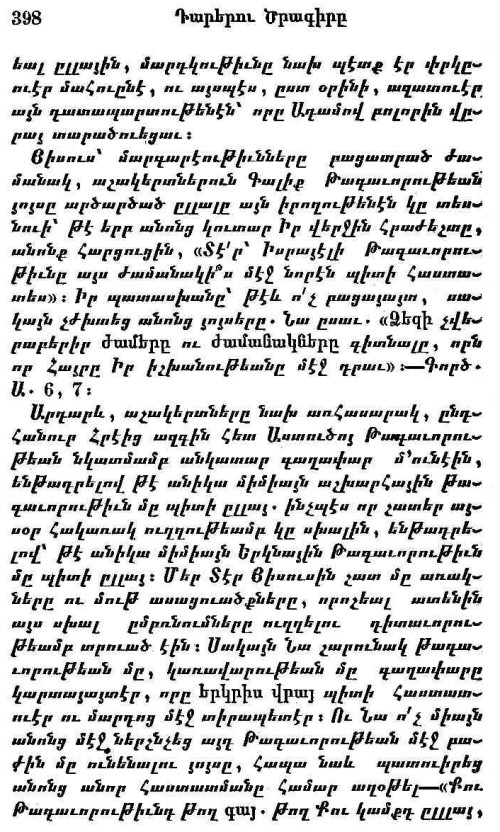 398 Դարերու Ծրագիրը
եալ ըլլային, մարդկութիւնը նախ պէտք էր փրկը-
ուէր մահուընէ, ու այսպէս, ըստ օրինի, ազատուէր
այն դատապարտութենէն՝ որը Ադամով բոլորին վը-
րայ տարածուեցաւ։
Յիսուս՝ մարգարէութիւնները բացատրած ժա-
մանակ, աշակերտներուն Գալիք Թագաւորութեան
յոյսը արծարծած ըլլալը այն իրողութենէն կը տես-
նուի՝ թէ երբ անոնց կուտար Իր վերջին Հրաժեշտը,
անոնք Հարցուցին, «Տէ՛ր՝ Իսրայէլի Թագաւորու-
թիւնը այս ժամանակի՞ս մէջ նորէն պիտի Հաստա-
տես»։ Իր պատասխանը՝ թէև ո՛չ բացայայտ, սա-
կայն չժխտեց անոնց յոյսերը. Նա ըսաւ. «Ձեզի չվե-
րաբերիր ժամերը ու ժամանակները գիտնալը, որն
որ Հայրը Իր իշխանութեանը մէջ դրաւ»։—Գործ.
Ա. 6, 7։
Արդարև, աշակերտները նախ առՀասարակ, ընդ-
Հանուր Հրէից ազգին Հետ Աստուծոյ Թագաւորու-
թեան նկատմամբ անկատար գաղափար մ՚ունէին,
ենթադրելով թէ անիկա միմիայն աշխարՀային Թա-
գաւորութիւն մը պիտի ըլլայ. ինչպէս որ շատեր այ-
սօր Հակառակ ուղղութեամբ կը սխալին, ենթադրե-
լով՝ թէ անիկա միմիայն Երկնային Թագաւորութիւն
մը պիտի ըլլայ։ Մեր Տէր Յիսուսին շատ մը առակ-
ները ու մութ ասացուածքները, որոշեալ ատենին
այս սխալ ըմբռնումները ուղղելու դիտաւորու-
թեամբ տրուած էին։ Սակայն Նա շարունակ Թագա-
ւորութեան մը, կառավարութեան մը գաղափարը
կարտայայտէր, որը երկրիս վրայ պիտի Հաստատ-
ուէր ու մարդոց մէջ տիրապետէր։ Ու Նա ո՛չ միայն
անոնց մէջ ներշնչեց այդ Թագաւորութեան մէջ բա-
ժին մը ունենալու յոյսը, Հապա նաև պատուիրեց
անոնց անոր Հաստատմանը Համար աղօթել—«Քու
Թագաւորութիւնդ թող գայ. թող Քու կամքդ ըլլլայ,